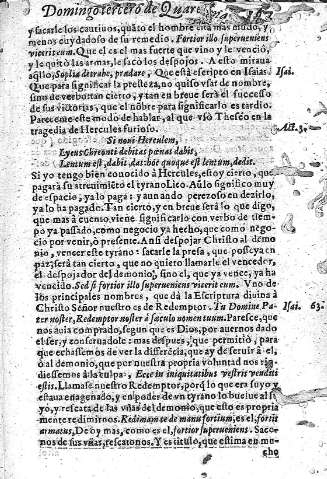 Domingo tercero de Quare
y sacarle los cautiuos, quãto el hombre está mas mudo, y
menos cuydadoso de su remedio. Fortior illo superueniens
vicerit eum. Que el es el mas fuerte que vino y le venció,
y le quitò las armas, le sacò los despojos. A esto miraua
aq̃llo, detrahe, prædare, Que està escripto en Isaias
Que para significar la presteza, no quiso vsar de nombre,
sino de verbo tan cierto, y tan en breue serà el sucesso
de sus victorias, que el nõbre para significarlo es tardio.
Pareceme este modo de hablar, al que vsò Theseo en la
tragedia de Hercules furioso.
Si noui Herculem,
Lycus Chreonti debitas pœnas dabit,
Lentum est, dabit, dat: hoc quoque est lentum, dedit.
Si yo tengo bien conocido à Hercules, estoy cierto, que
pagarà su atreuimiẽto el tyrano Lico. Aũ lo significo muy
de espacio, ya lo paga: y aun ando perezoso en dezirlo,
ya lo ha pagado. Tan cierto, y en breue serà lo que digo,
que mas à cuento viene significarlo con verbo de tiem-
po ya passado, como negocio ya hecho, que como nego-
cio por venir, ò presente. Ansi despojar Christo al demo
nio, vencer este tyrano: sacarle la presa, que posseya en
paz; serà tan cierto, que no quiero llamarle el vencedor,
el despojador del demonio, sino el, que ya vence, ya ha
vencido. Sed si fortior illo superueniens vicerit eum. Vno de
los principales nombres, que dà la Escriptura diuina à
Christo Señor nuestro es de Redemptor. Tu Domine Pa-
ter noster, Redemptor noster à sæculo nomen tuum. Parece, que
nos auia comprado, segun que es Dios, por auernos dado
el ser, y conseruadole: mas despues, que permitiò, para
que echassemos de ver la differẽcia, que ay de seruir à el,
ò al demonio, que por nuestra propria voluntad nos rin-
diessemos à la culpa. Ecce in iniquitatibus vestris venditi
estis. Llamase nuestro Redemptor, porq̃ lo que era suyo y
estaua enagenado, y en poder de vn tyrano lo buelue al su
yo, y rescata de las vñas del demonio, que esto es propria
mente redimirnos. Redimam te de manu fortium, es el, fortis
armatus, De oy mas, como es el, fortior superueniens. Saco-
nos de sus vñas, rescatonos. Y es titulo, que estima en mu-
cho
Isai.
Act. 3.
Isai. 63.